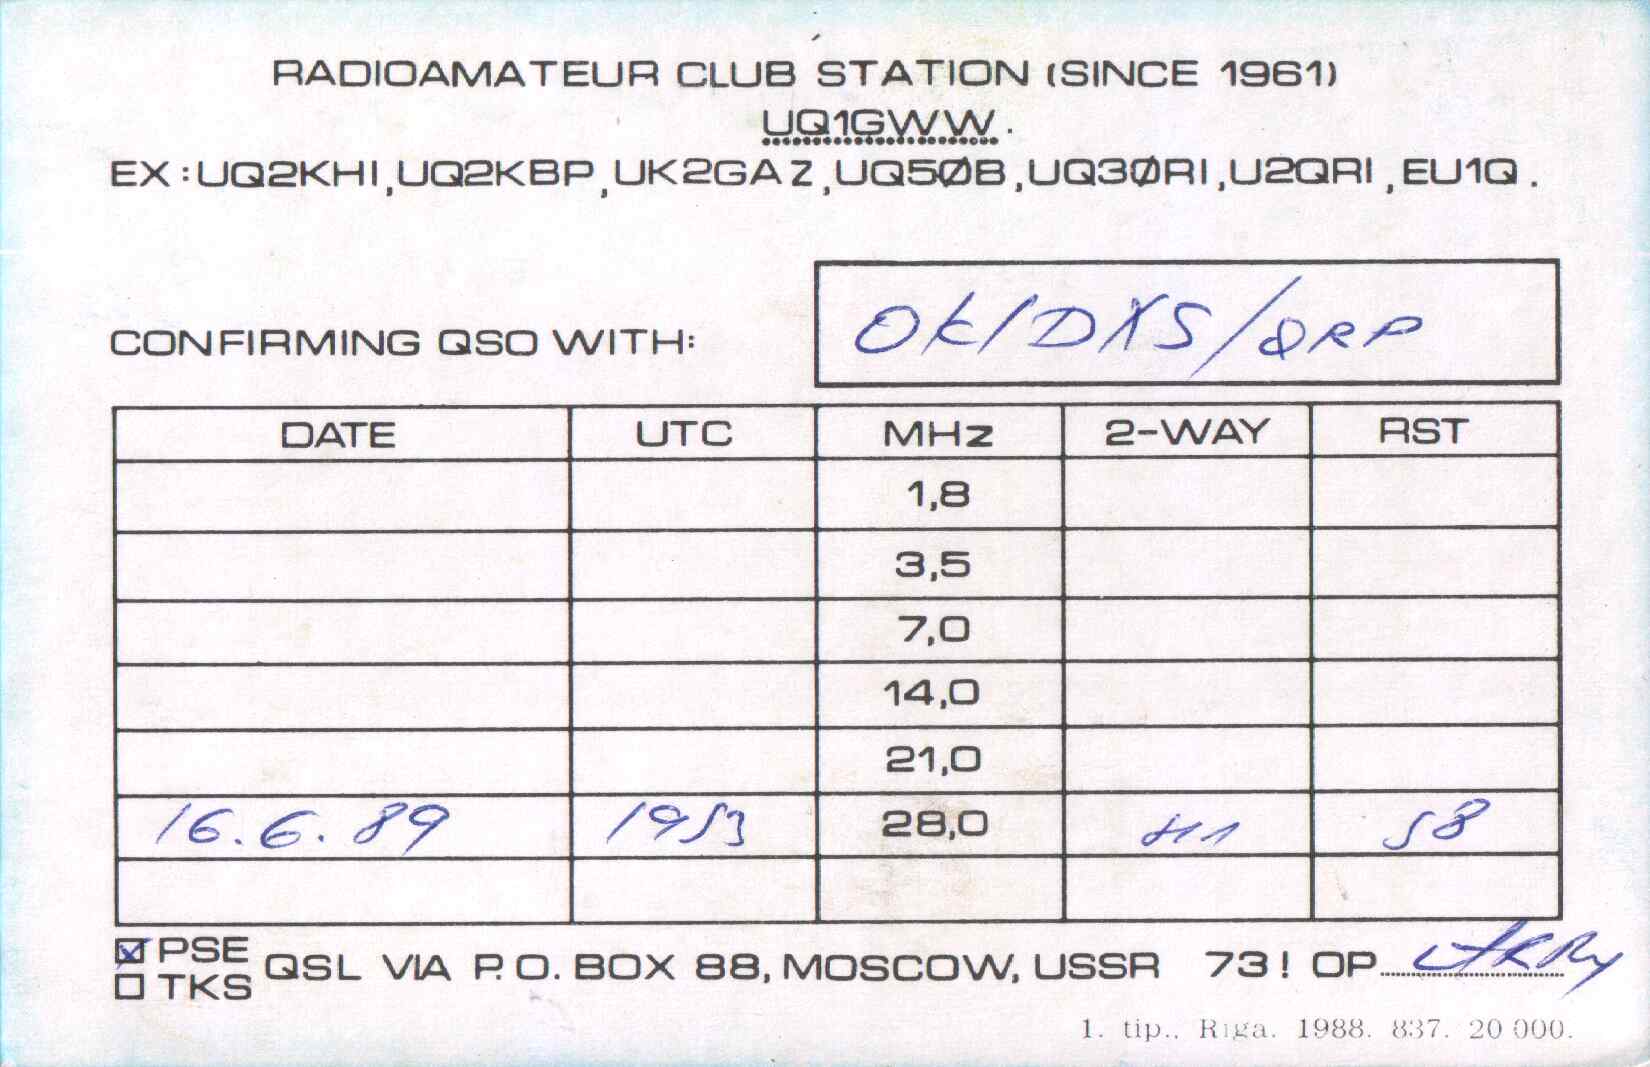 RADIOAMATEUR CLUB STATION (SINCE 1961)
UQ1GWW.
EX:UQ2KHI,UQ2KBP,UK2GAZ,UQ5ØB,UQ3ØRI,U2QRI,EU1Q.
CONFIRMING QSO WITH: OK1DXS/QRP
DATE UTC MHz 2-WAY RST
1,8
3,5
7,0
14,0
21,0
16.6.89 1953 28,0 58
PSE
TKS QSL VIA P.O. BOX 88, MOSCOW, USSR 73! OP
1. tip., Rīga. 1988. 837. 20 000.